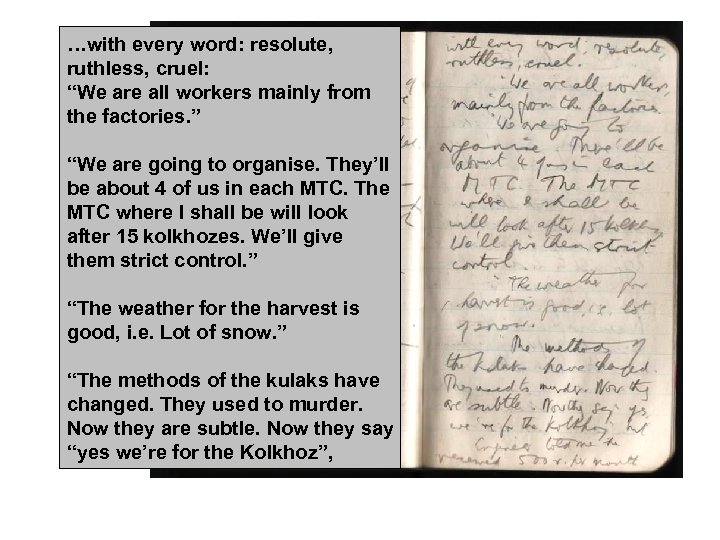 …with every word: resolute,
ruthless, cruel:
“We are all workers mainly from
the factories. ”
“We are going to organise. They’ll
be about 4 of us in each MTC. The
MTC where I shall be will look
after 15 kolkhozes. We’ll give
them strict control. ”
“The weather for the harvest is
good, i.e. Lot of snow. ”
“The methods of the kulaks have
changed. They used to murder.
Now they are subtle. Now they say
“yes we’re for the Kolkhoz”,
with every word: resolute,
ruthless, cruel.
"We are all workers,
mainly from the factories.
"We are going to
organise. There'll be
about 4 of us in each
MTC. The MTC
where I shall be
will look after 15 kolkhozy.
We'll give them strict
control."
"The weather for
harvest is good, i.e. lot
of snow."
"The methods of
the kulaks have changed.
They used to murder. Now they
are subtle. Now they say 'yes,
we're for the Kolkhoz' but
told me he
received 500 r. per month